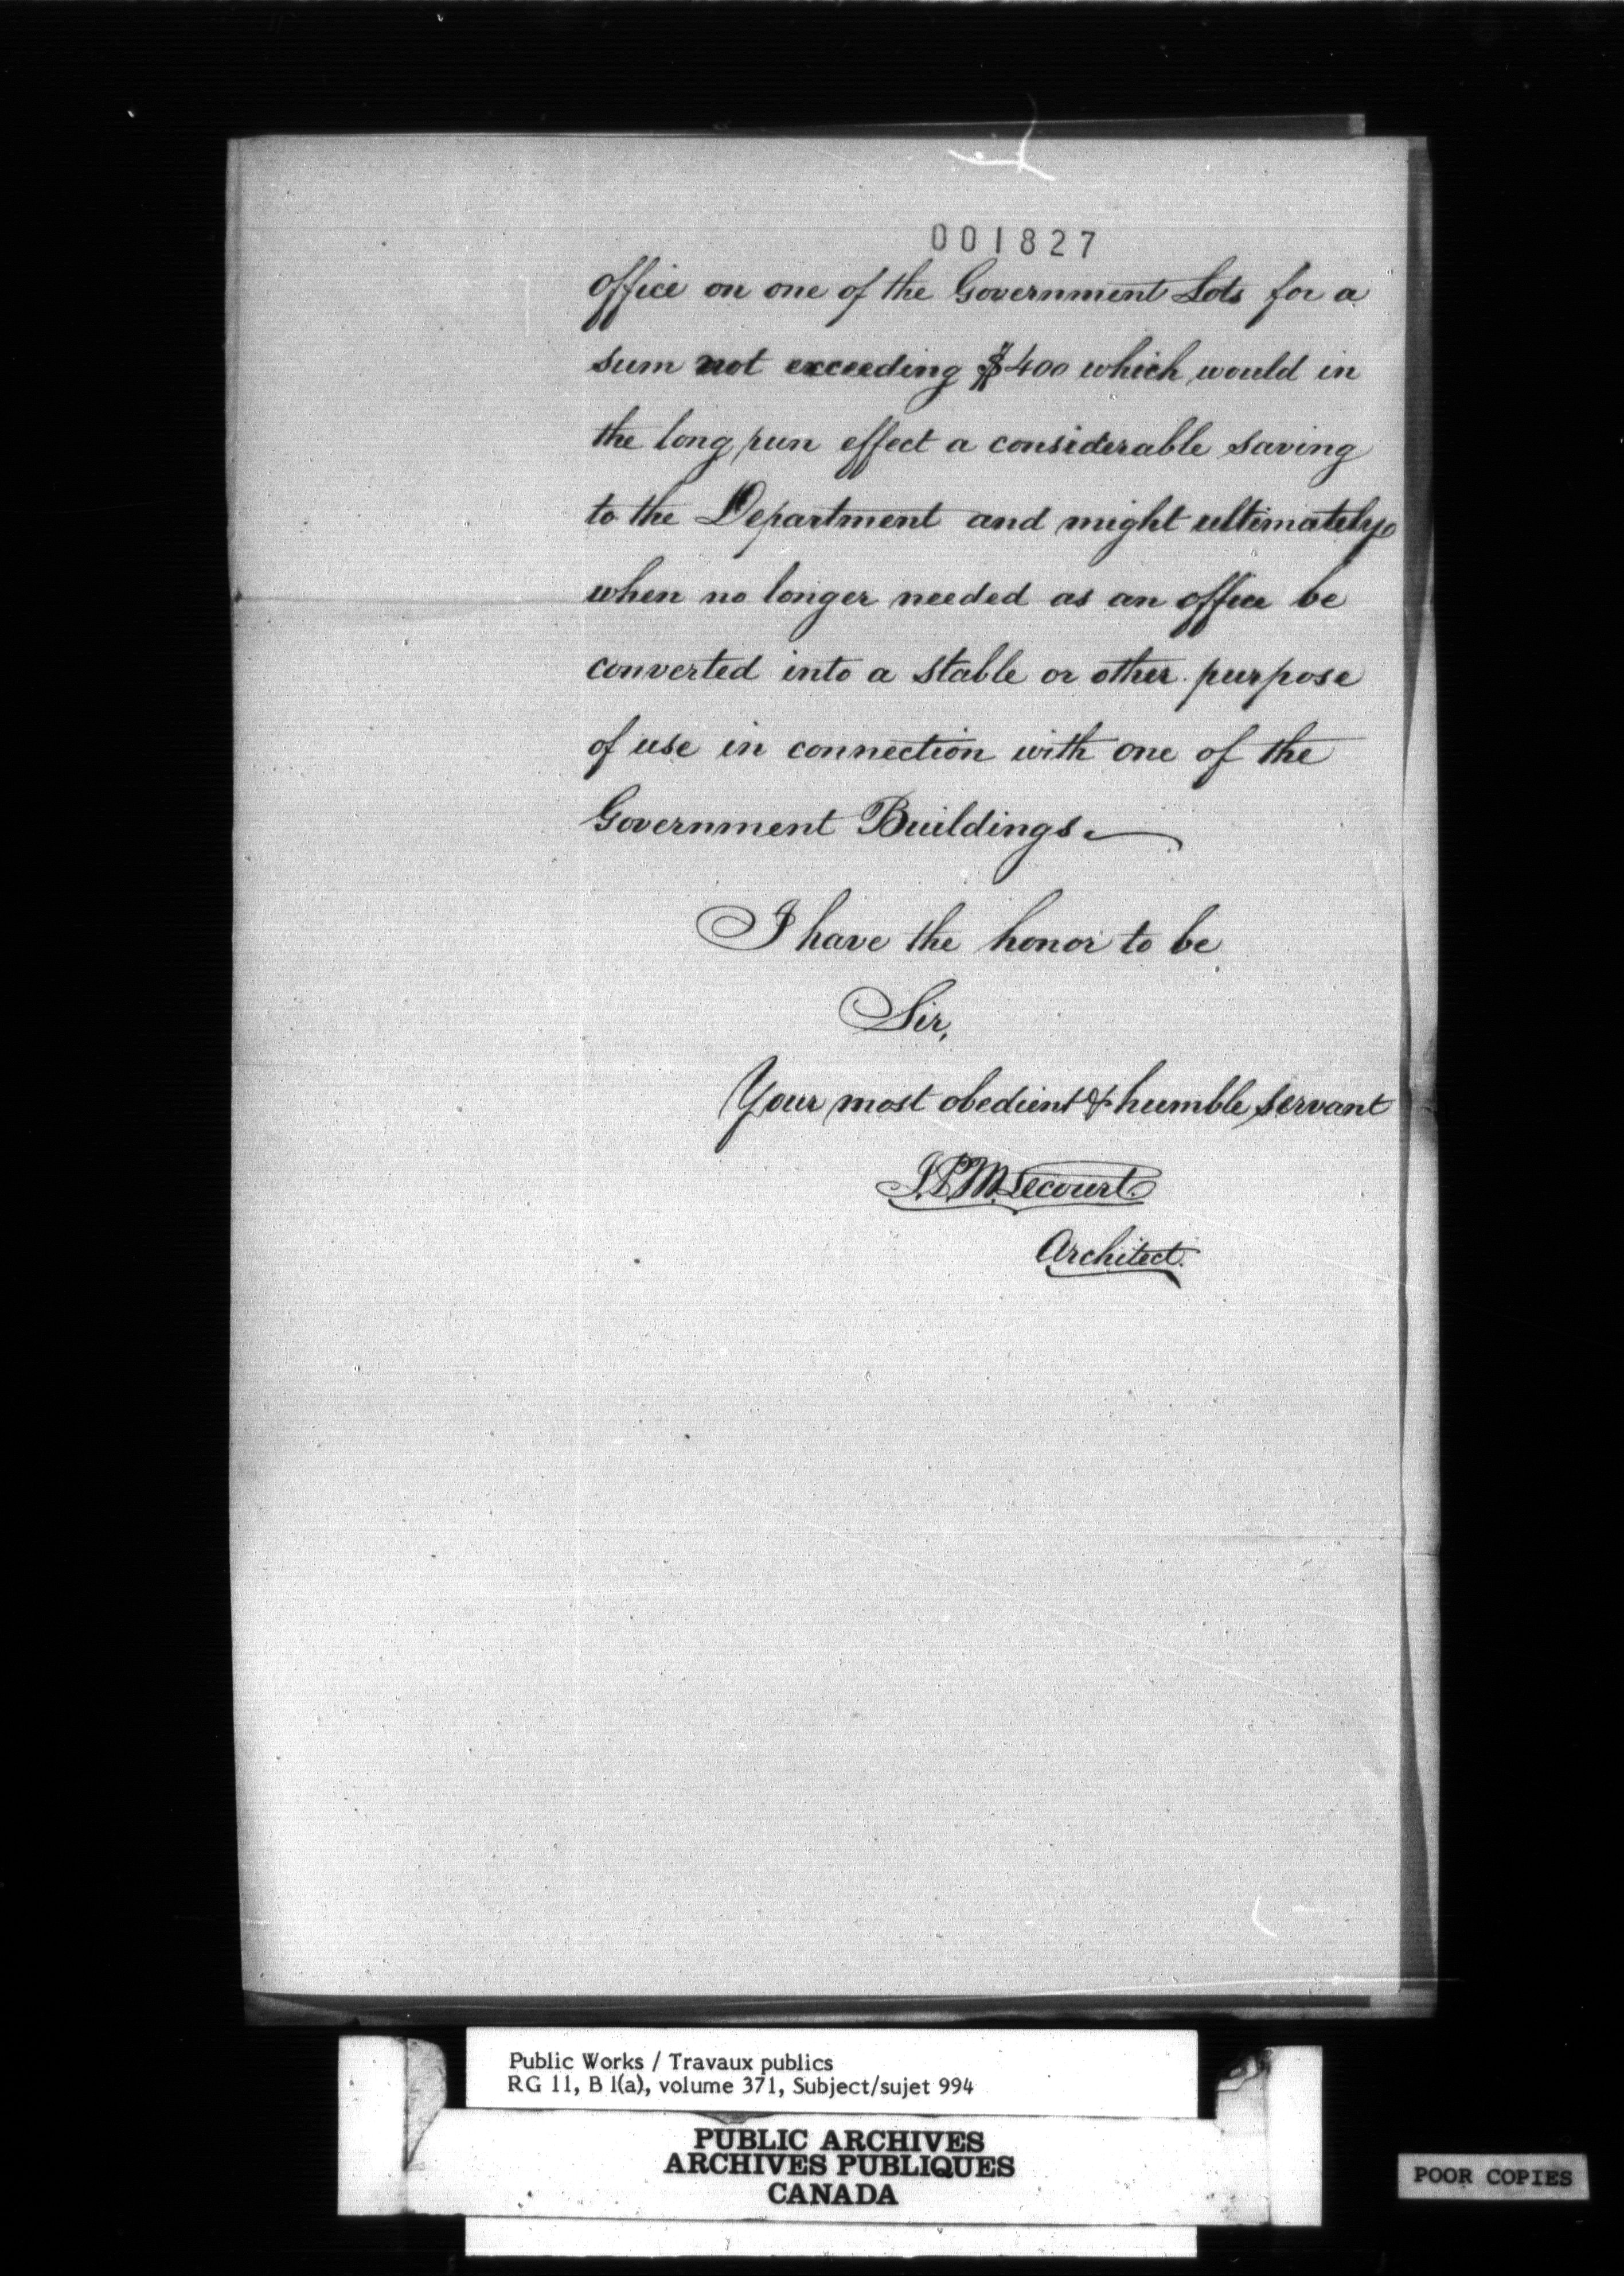 001827
office on one of the Government Lots for a
sum not exceeding $400 which would in
the long run effect a considerable saving
to the Department and might ultimately
when no longer needed as an office be
converted into a stable or other purpose
of use in connection with one of the
Government Buildings.
I have the honor to be
Sir,
Your most obedient & humble servant
J.P.M. Lecourt.
Architect.
Public Works / Travaux publics
RG 11, B 1(a), volume 371, Subject/sujet 994
PUBLIC ARCHIVES
ARCHIVES PUBLIQUES
CANADA
POOR COPIES